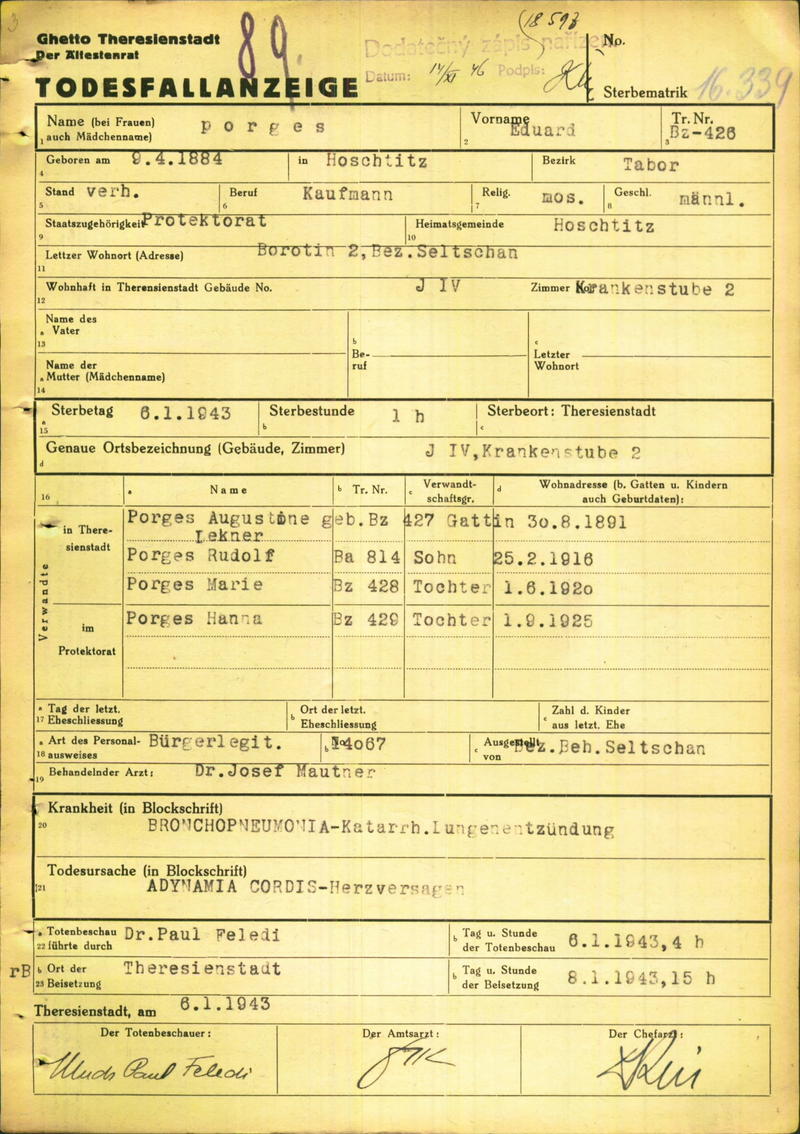 3 89. (18 593)
Ghetto Theresienstadt
Der Ältestenrat
Dodatečný zápis nařízen No.
Datum: 14/XI 46 Podpis:
TODESFALLANZEIGE
Sterbematrik 16.339
Name (bei Frauen) auch Mädchenname) porges
1
Vorname Eduard
2
Tr. Nr. Bz-426
3
Geboren am 9.4.1884 in Hoschtitz Bezirk Tabor
4
Stand verh. Beruf Kaufmann Relig. mos. Geschl. männl.
5 6 7 8
Staatszugehörigkeit Protektorat Heimatsgemeinde Hoschtitz
9 10
Lettzer Wohnort (Adresse) Borotin 2,Bez.Seltschan
11
Wohnhaft in Therensienstadt Gebäude No. J IV Zimmer No. Krankenstube 2
12
Name des
a Vater
13
b
Be-
ruf
c
Letzter
Wohnort
Name der
a Mutter (Mädchenname)
14
Sterbetag 6.1.1943 Sterbestunde 1 h Sterbeort: Theresienstadt
a 15 b c
Genaue Ortsbezeichnung (Gebäude, Zimmer) J IV,Krankenstube 2
d
16 a Name b Tr. Nr. c Verwandt-schaftsgr. d Wohnadresse (b. Gatten u. Kindern auch Geburtdaten):
Verwandte
in There-
sienstadt
Porges Augustine geb. Bz 427 Gattin 30.8.1891
Lekner
Porges Rudolf Ba 814 Sohn 25.2.1916
Porges Marie Bz 428 Tochter 1.6.1920
im
Protektorat
Porges Hanna Bz 429 Tochter 1.9.1925
a Tag der letzt.
17 Eheschliessung
b Ort der letzt.
Eheschliessung
c Zahl d. Kinder
aus letzt. Ehe
a Art des Personal-
18 ausweises
Bürgerlegit. b 14067 c Ausgestellt von Bez.Beh.Seltschan
19 Behandelnder Arzt: Dr.Josef Mautner
Krankheit (in Blockschrift)
20 BRONCHOPNEUMONIA-Katarrh.Lungenentzündung
Todesursache (in Blockschrift)
21 ADYNAMIA CORDIS-Herzversagen
a Totenbeschau
22 führte durch
Dr.Paul Feledi
b Tag u. Stunde
der Totenbeschau
6.1.1943,4 h
rB
b Ort der
23 Beisetzung
Theresienstadt
b Tag u. Stunde
der Beisetzung
8.1.1943,15 h
Theresienstadt, am 6.1.1943
Der Totenbeschauer: Der Amtsarzt: Der Chefarzt:
Paul Feledi